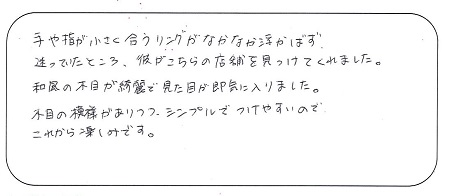 手や指が小さく合うリングがなかなか浮かばず、
迷っていたところ、彼がこちらの店舗を見つけてくれました。
和風の木目が綺麗で見た目が即気に入りました。
木目の模様がありつつ、シンプルでつけやすいので
これから楽しみです。